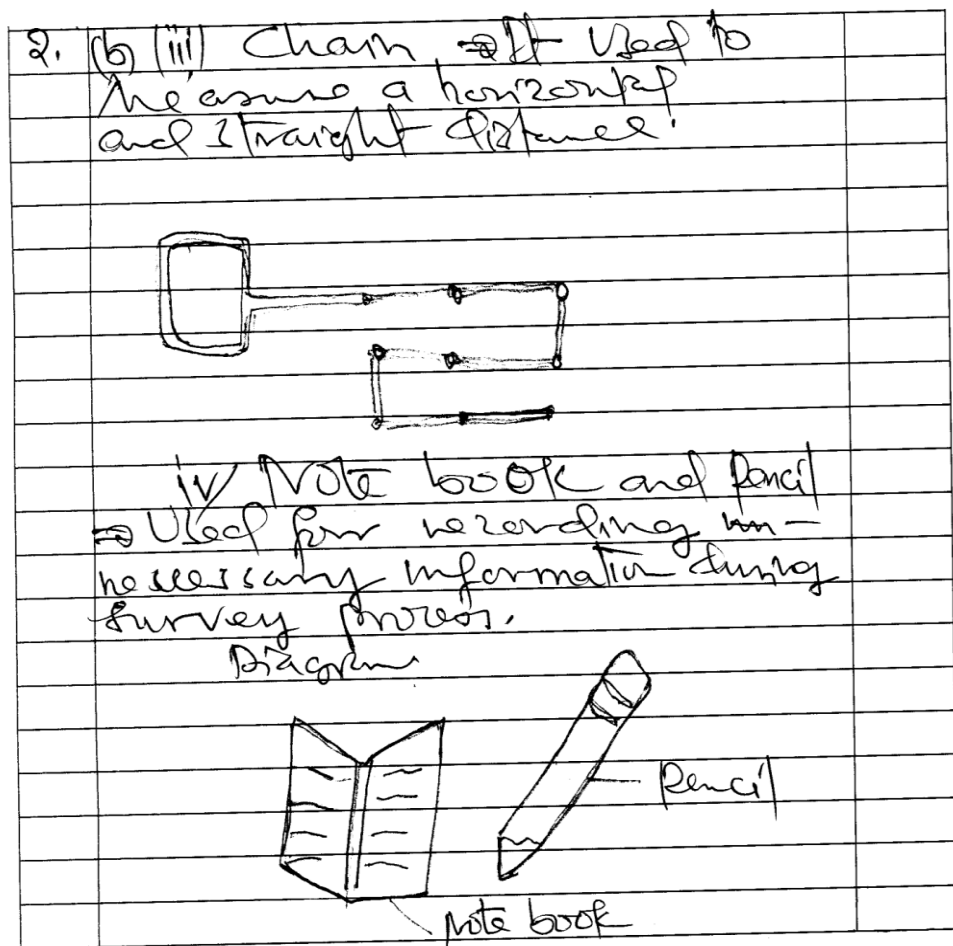 2. (b) (iii) Chain ⇒ It Used to
measure a horizontal
and straight distance.
iv/ Note book and pencil
⇒ Used for recording
necessary information during
survey process.
Diagram
Pencil
Note book